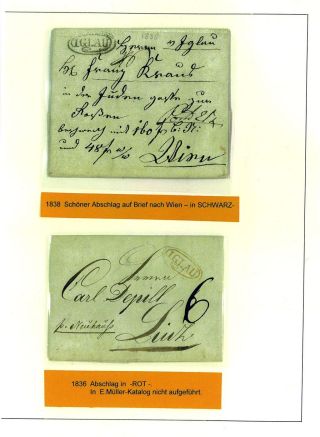 IGLAU
1838
Herrn v Iglau
Franz Kraus
in der Juden gasse zum
beschwert mit 160 f
und 45
Wien
1838 Schöner Abschlag auf Brief nach Wien – in SCHWARZ-
IGLAU
Herrn
Carl
6
p. Neuhaus
Linz
1836 Abschlag in -ROT -.
In E.Müller-Katalog nicht aufgeführt.